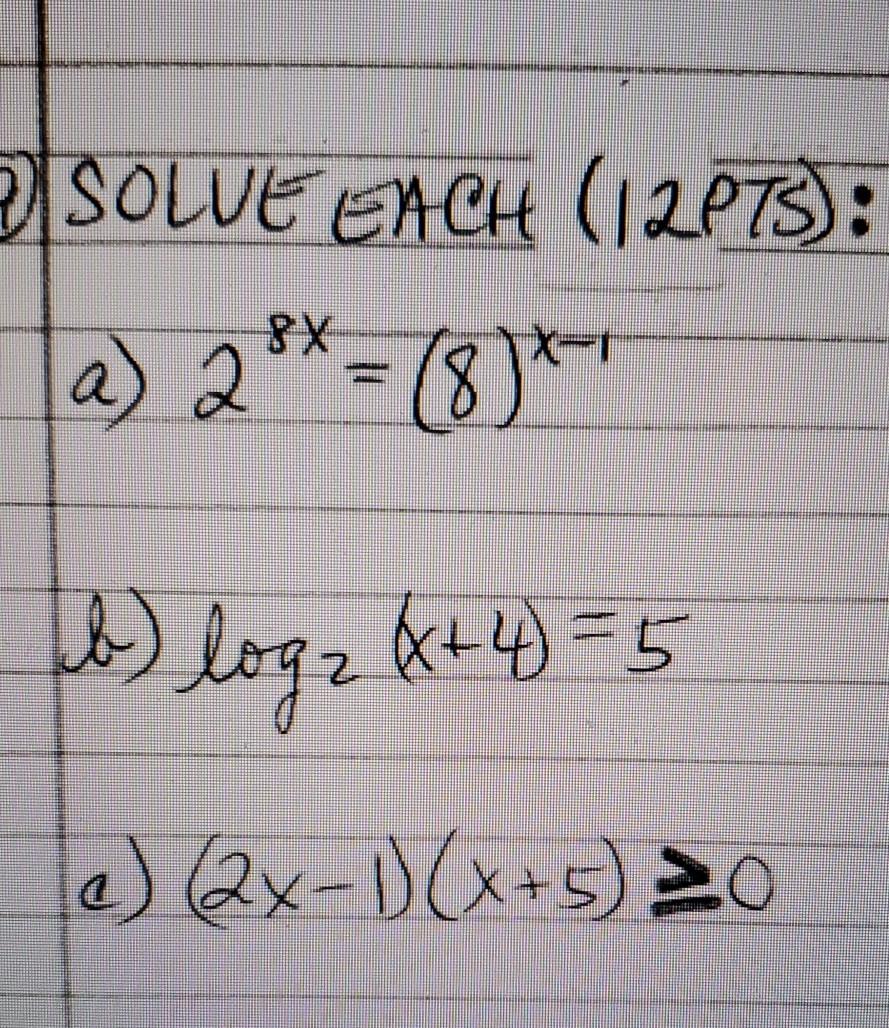 SOLVE EACH (12PTS):
a) 2^{8x} = (8)^{x-1}
b) log₂ (x+4) = 5
c) (2x-1)(x+5) ≥ 0